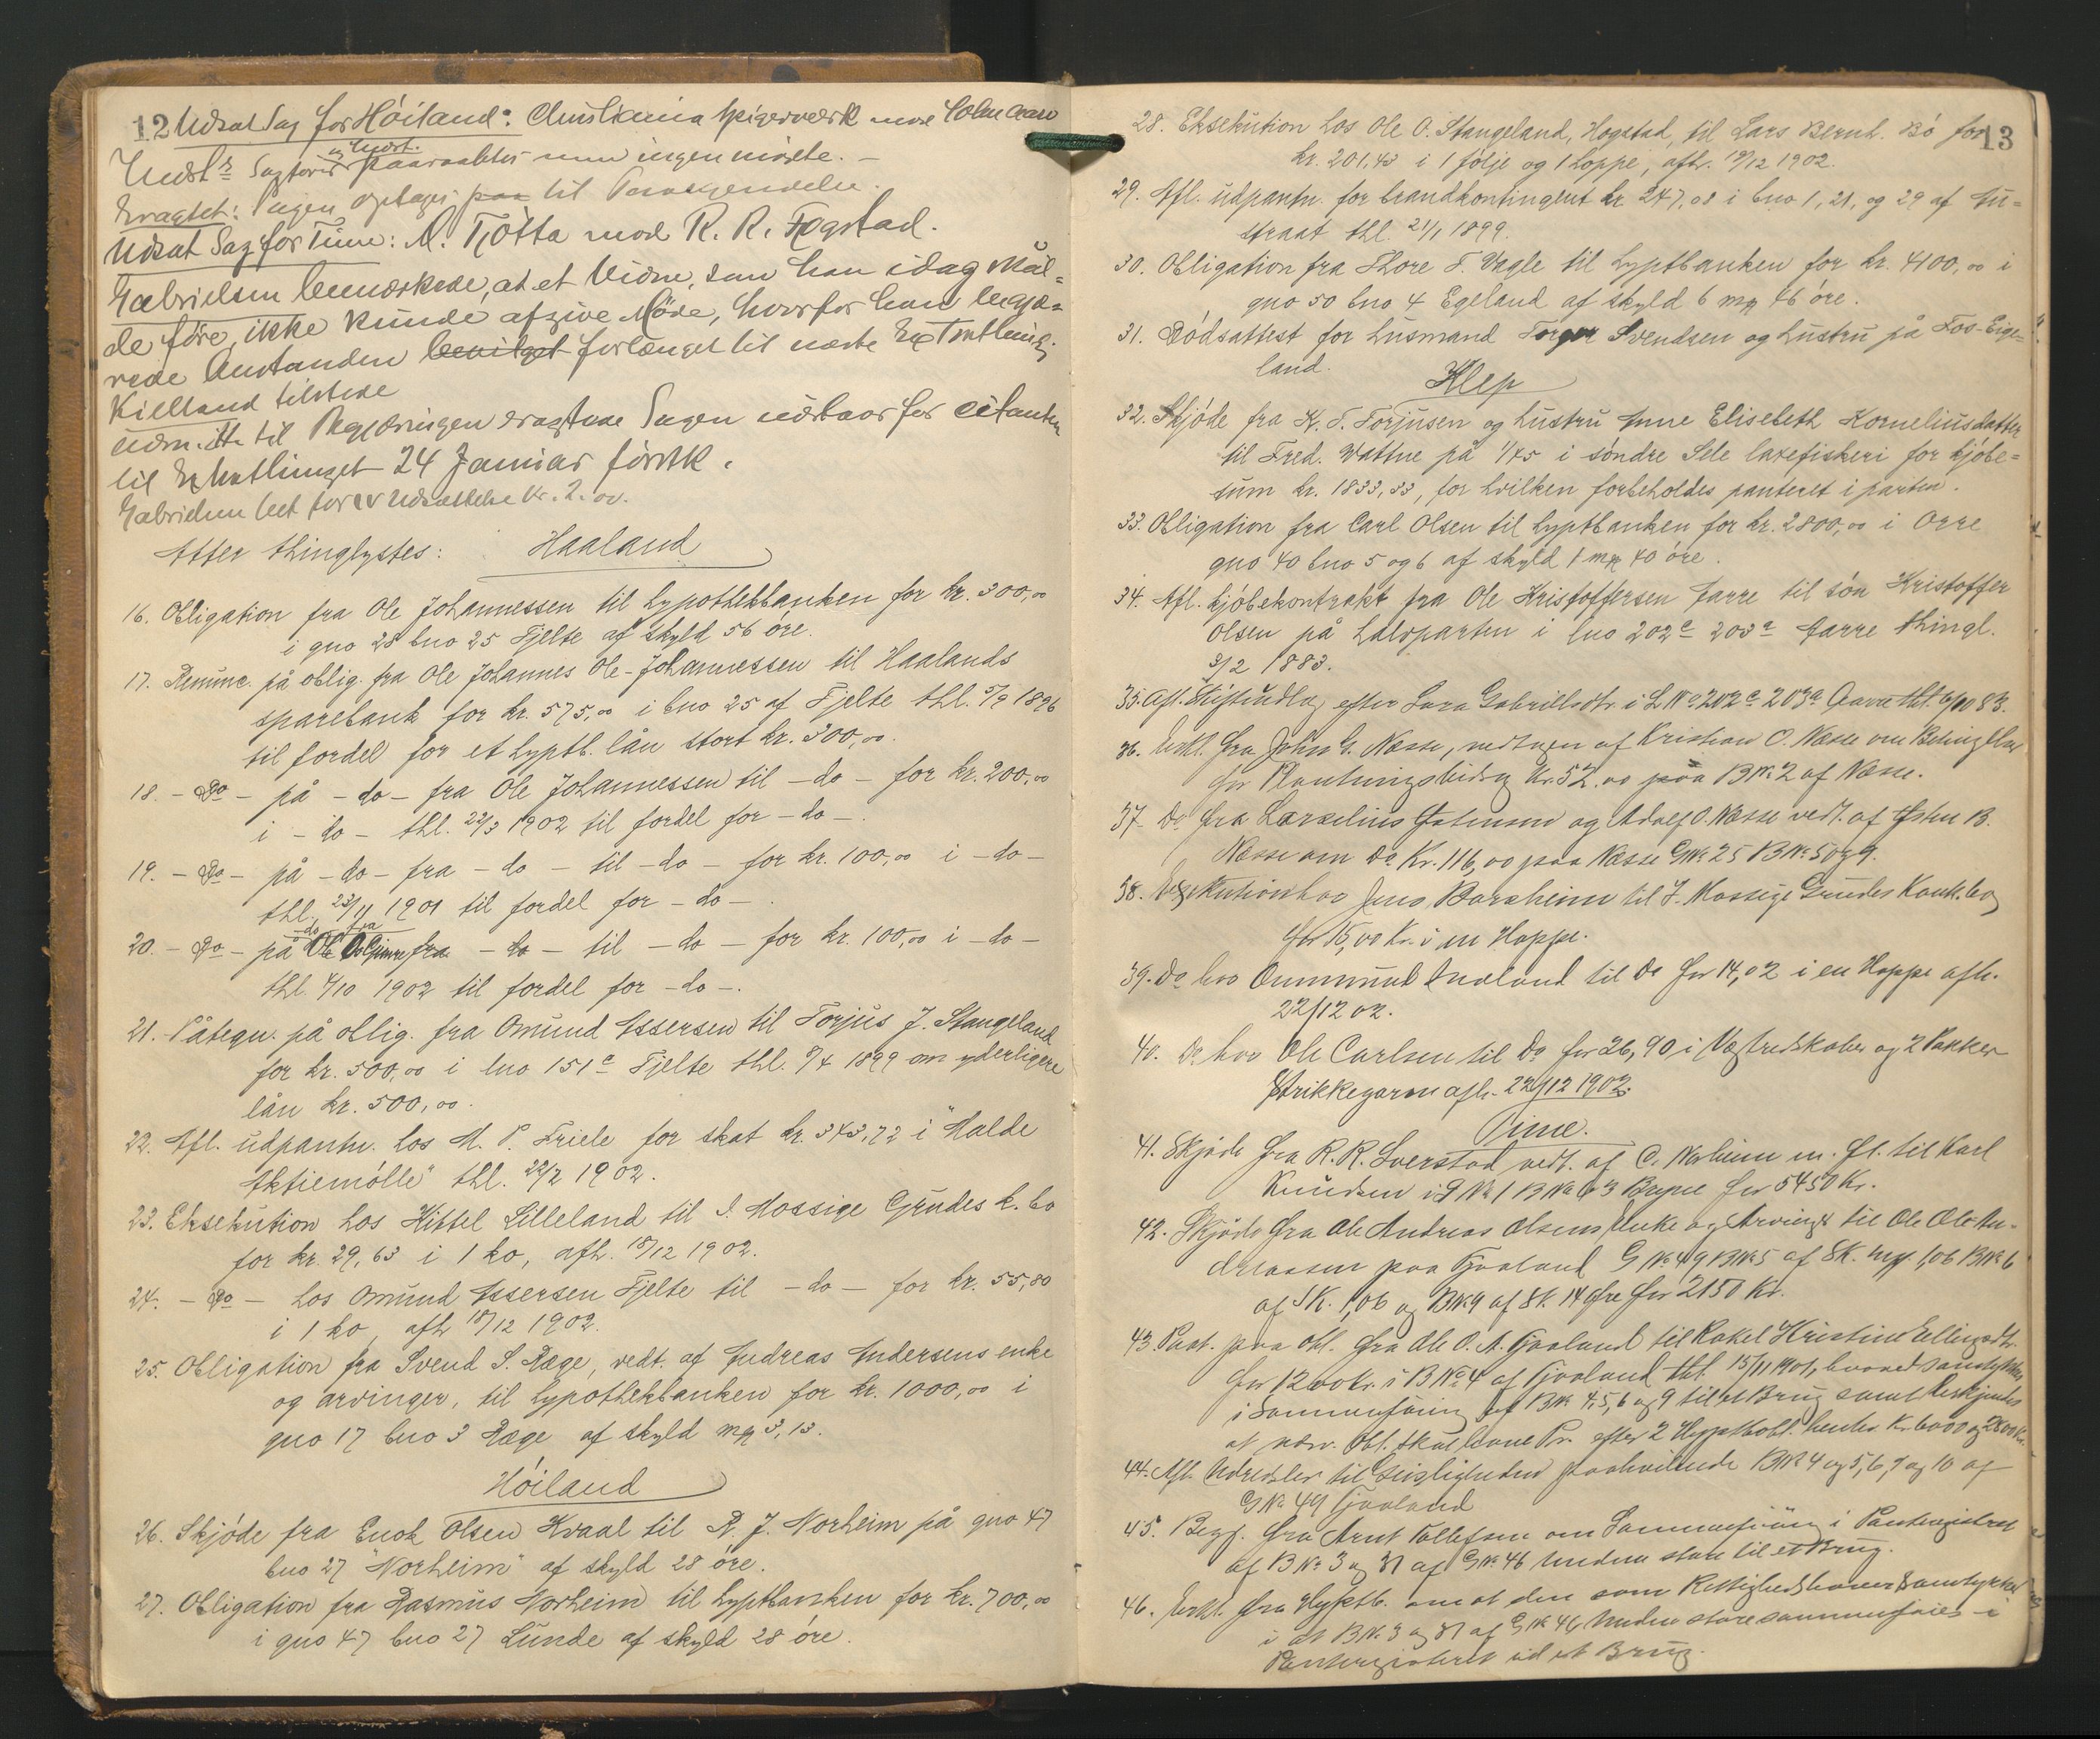 12 Udsat Sag for Höiland: Christiania Spigerverk mod
Indst. Sagfører paaraabtes men ingen mödte. –
Eragtet: Sagen optages paa til
Udsat Sag for Time: A. Tjötta mod R. R. Fogstad.
Gabrielsen bemærkede, at et Vidne, som han idag skul=
de före, ikke kunde afgive Möde, hvorfor han begjæ=
rede Anstanden bevilget forlænget til næste Extrathing
Kielland tilstede
til Begjæringen eragtede Sagen udsat for Citanten
til Extrathinget 24 Januar förstk.
Gabrielsen bet for Udsættelse Kr. 2.00.
Atter thinglystes: Haaland
16. Obligation fra Ole Johannessen til hypothekbanken for kr. 300,00
i gno 28 bno 25 Fjelte af skyld 56 öre.
17. Renunc. på oblig. fra Ole Johannes Ole-Johannessen til Haalands
sparebank for kr. 575,00 i bno 25 af Fjelte thl. 5/9 1896
til fordel for et hyptb. lån stort kr. 300,00.
18. – Do – på – do – fra Ole Johannessen til – do – for kr. 200,00
i – do – thl. 22/3 1902 til fordel for – do –.
19. – Do – på – do – fra – do – til – do – for kr. 100,00 i – do –
thl. 23/11 1901 til fordel for – do –.
20. – Do – på – do – fra – do – til – do – for kr. 100,00 i – do –
thl. 4/10 1902 til fordel for – do –.
21. Påtegn. på oblig. fra Omund Assersen til Torjus J. Stangeland
for kr. 500,00 i lno 151c Fjelte thl. 9/4 1899 om yderligere
lån kr. 500,00.
22. Afl. udpantn. hos M. P. Friele for skat kr. 343,72 i "Malde
Aktiemölle" thl. 22/2 1902.
23. Eksekution hos Kittel Lilleland til I. Mossige Grudes k. bo
for kr. 29,63 i 1 ko, afh. 18/12 1902.
24. – Do – hos Omund Assersen Fjelte til – do – for kr. 55,80
i 1 ko, afh. 18/12 1902.
25. Obligation fra Svend S. Ræge, vedt. af Andreas Andersens enke
og arvinger, til hypothekbanken for kr. 1000,00 i
gno 17 bno 3 Ræge af skyld mrk 3,13.
Höiland
26. Skjöde fra Enok Olsen Kvaal til R. J. Norheim på gno 47
bno 27 "Norheim" af skyld 28 öre.
27. Obligation fra Rasmus Norheim til hyptbanken for kr. 700,00
i gno 47 bno 27 Lunde af skyld 28 öre.
28. Eksekution hos Ole O. Stangeland, Hogstad, til Lars Bernt. Bö for 13
kr. 201,43 i 1 följe og 1 hoppe, afh. 19/12 1902.
29. Afl. udpantn. for brandkontingent kr. 247,08 i bno 1, 21, og 29 af Au=
straat thl. 21/1 1899.
30. Obligation fra Thore T. Vagle til hyptbanken for kr. 4100,00 i
gno 50 bno 4 Egeland af skyld 6 mrk 46 öre.
31. Dödsattest for husmand Torger Svendsen og hustru på Fos-Eige=
land.
Klep
32. Skjöde fra K. T. Torjusen og hustru Anne Elisebeth Korneliusdatter
til Fred. Wattne på 1/45 i söndre Sele laxefiskeri for kjöbe=
sum kr. 1833,33, for hvilken forbeholdes panteret i parten.
33. Obligation fra Carl Olsen til hyptbanken for kr. 2800,00 i Orre
gno 40 bno 5 og 6 af skyld 1 mrk 40 öre.
34. Afl. kjöbekontrakt fra Ole Kristoffersen Garre til sön Kristoffer
Olsen på halvparten i lno 202c 203a Garre thingl.
3/2 1883.
35. Afl. Skifteudlæg efter Sara Gabrielsdtr. i L No 202c 203a Garre thl. 6/10 83.
36. Erkl. fra John G. Næsse, vedtagen af Kristian O. Næsse om Betingelse
for Plantningsbidrag Kr. 52,00 paa B No 2 af Næsse.
37. Do fra Larselius Østensen og Adolf O. Næsse vedt. af Østen B.
Næsse om Do Kr. 116,00 paa Næsse G No 25 B No 5 og 9.
38. Exekution hos Jens Borsheim til J. Mossige Grudes Konk.bo
for 15,00 Kr. i en Hoppe.
39. Do hos Ommund til Do for 14,02 i en Hoppe afh.
22/12 02.
40. Do hos Ole Carlsen til Do for 26,90 i Vægtredskaber og 2 Pakker
Strikkegarn afh. 22/12 1902.
Time.
41. Skjöde fra R. R. Sverstad vedt. af O. Norheim m. fl. til Karl
Knudsen i G No 1 B No 63 Bryne for 5450 Kr.
42. Skjöde fra Ole Andreas Olsens Enke og Arvinger til Ole Ole An-
dreassen paa Tjaaland G No 49 B No 5 af Sk. mrk 1,06 B No 6
af Sk. 1,06 og B No 9 af Sk. 14 Øre for 2150 Kr.
43 Paat. paa Obl. fra Ole O. A. Tjaaland til Rakel Kristine Ellingsdtr.
for 1200 Kr. i B No 4 af Tjaaland thl. 15/11 1901, hvorved samtykkes
i Sammenföining af B No 4, 5, 6 og 9 til et Brug samt
at nærv. Obl. skal have Pr. efter 2 Hypthobl. Kr. 6000 og 2800 Kr.
44. Afl. Udredsler til Geistligheden paahvilende B No 4 og 5, 6, 9 og 10 af
G No 49 Tjaaland
45. Begj. fra Arnt Tollefsen om Sammenföining i Panteregistret
af B No 3 og 31 af G No 46 Undem store til et Brug.
46. Erkl. fra Hyptb. om at den som Rettighedshaver samtykker
i at B No 3 og 31 af G No 46 Undem store sammenföies i
Panteregisteret til et Brug.